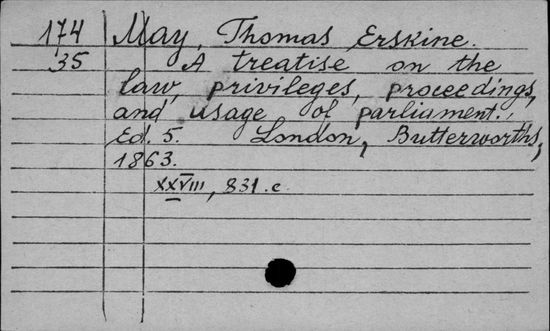 174 May, Thomas Erskine.
35 A treatise on the
law, privileges, proceedings,
and usage of parliament.
Ed. 5. London, Butterworths,
1863.
XXVIII, 831.c.